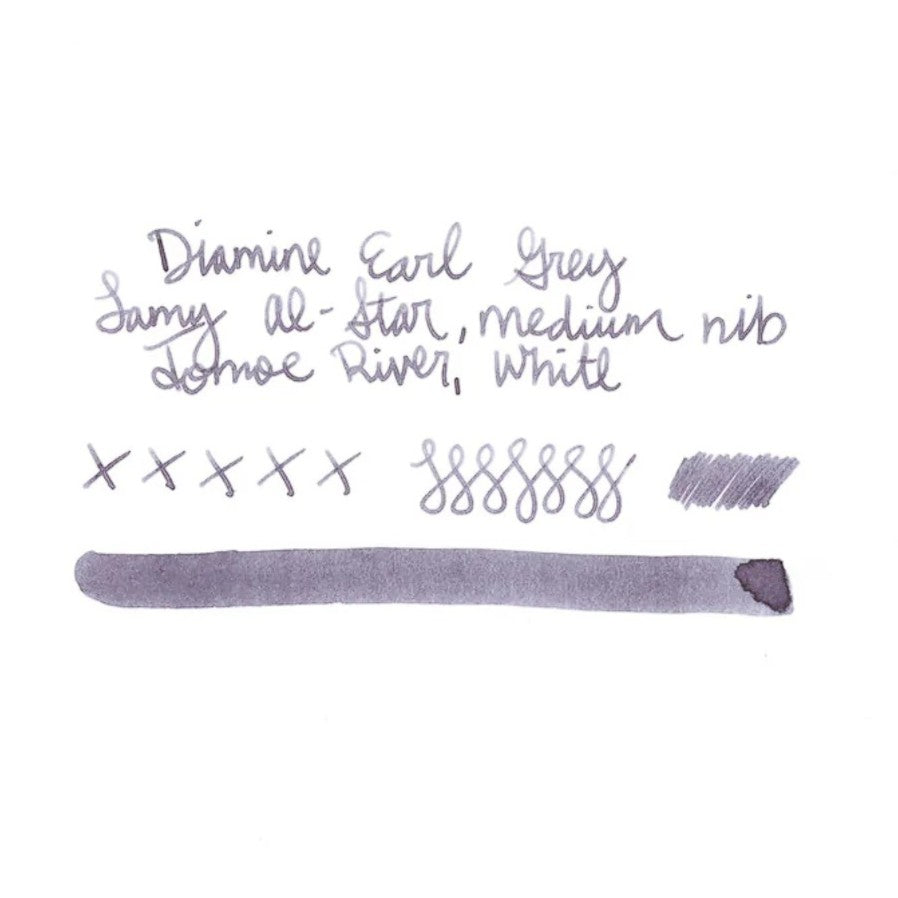 Diamine Earl Grey
Lamy Al-Star, medium nib
Tomoe River, White
X X X X X